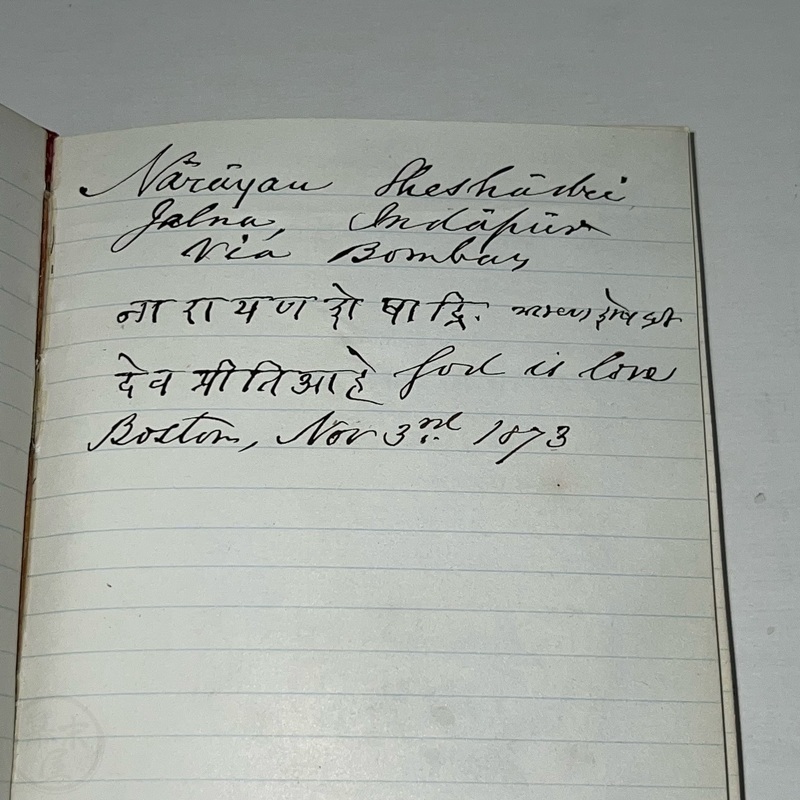 Nārāyan Sheshādri
Jalna, Indāpūr
Via Bombay
नारायण शेषाद्रि.
देव प्रीति आहे God is love
Boston, Nov 3rd. 1873